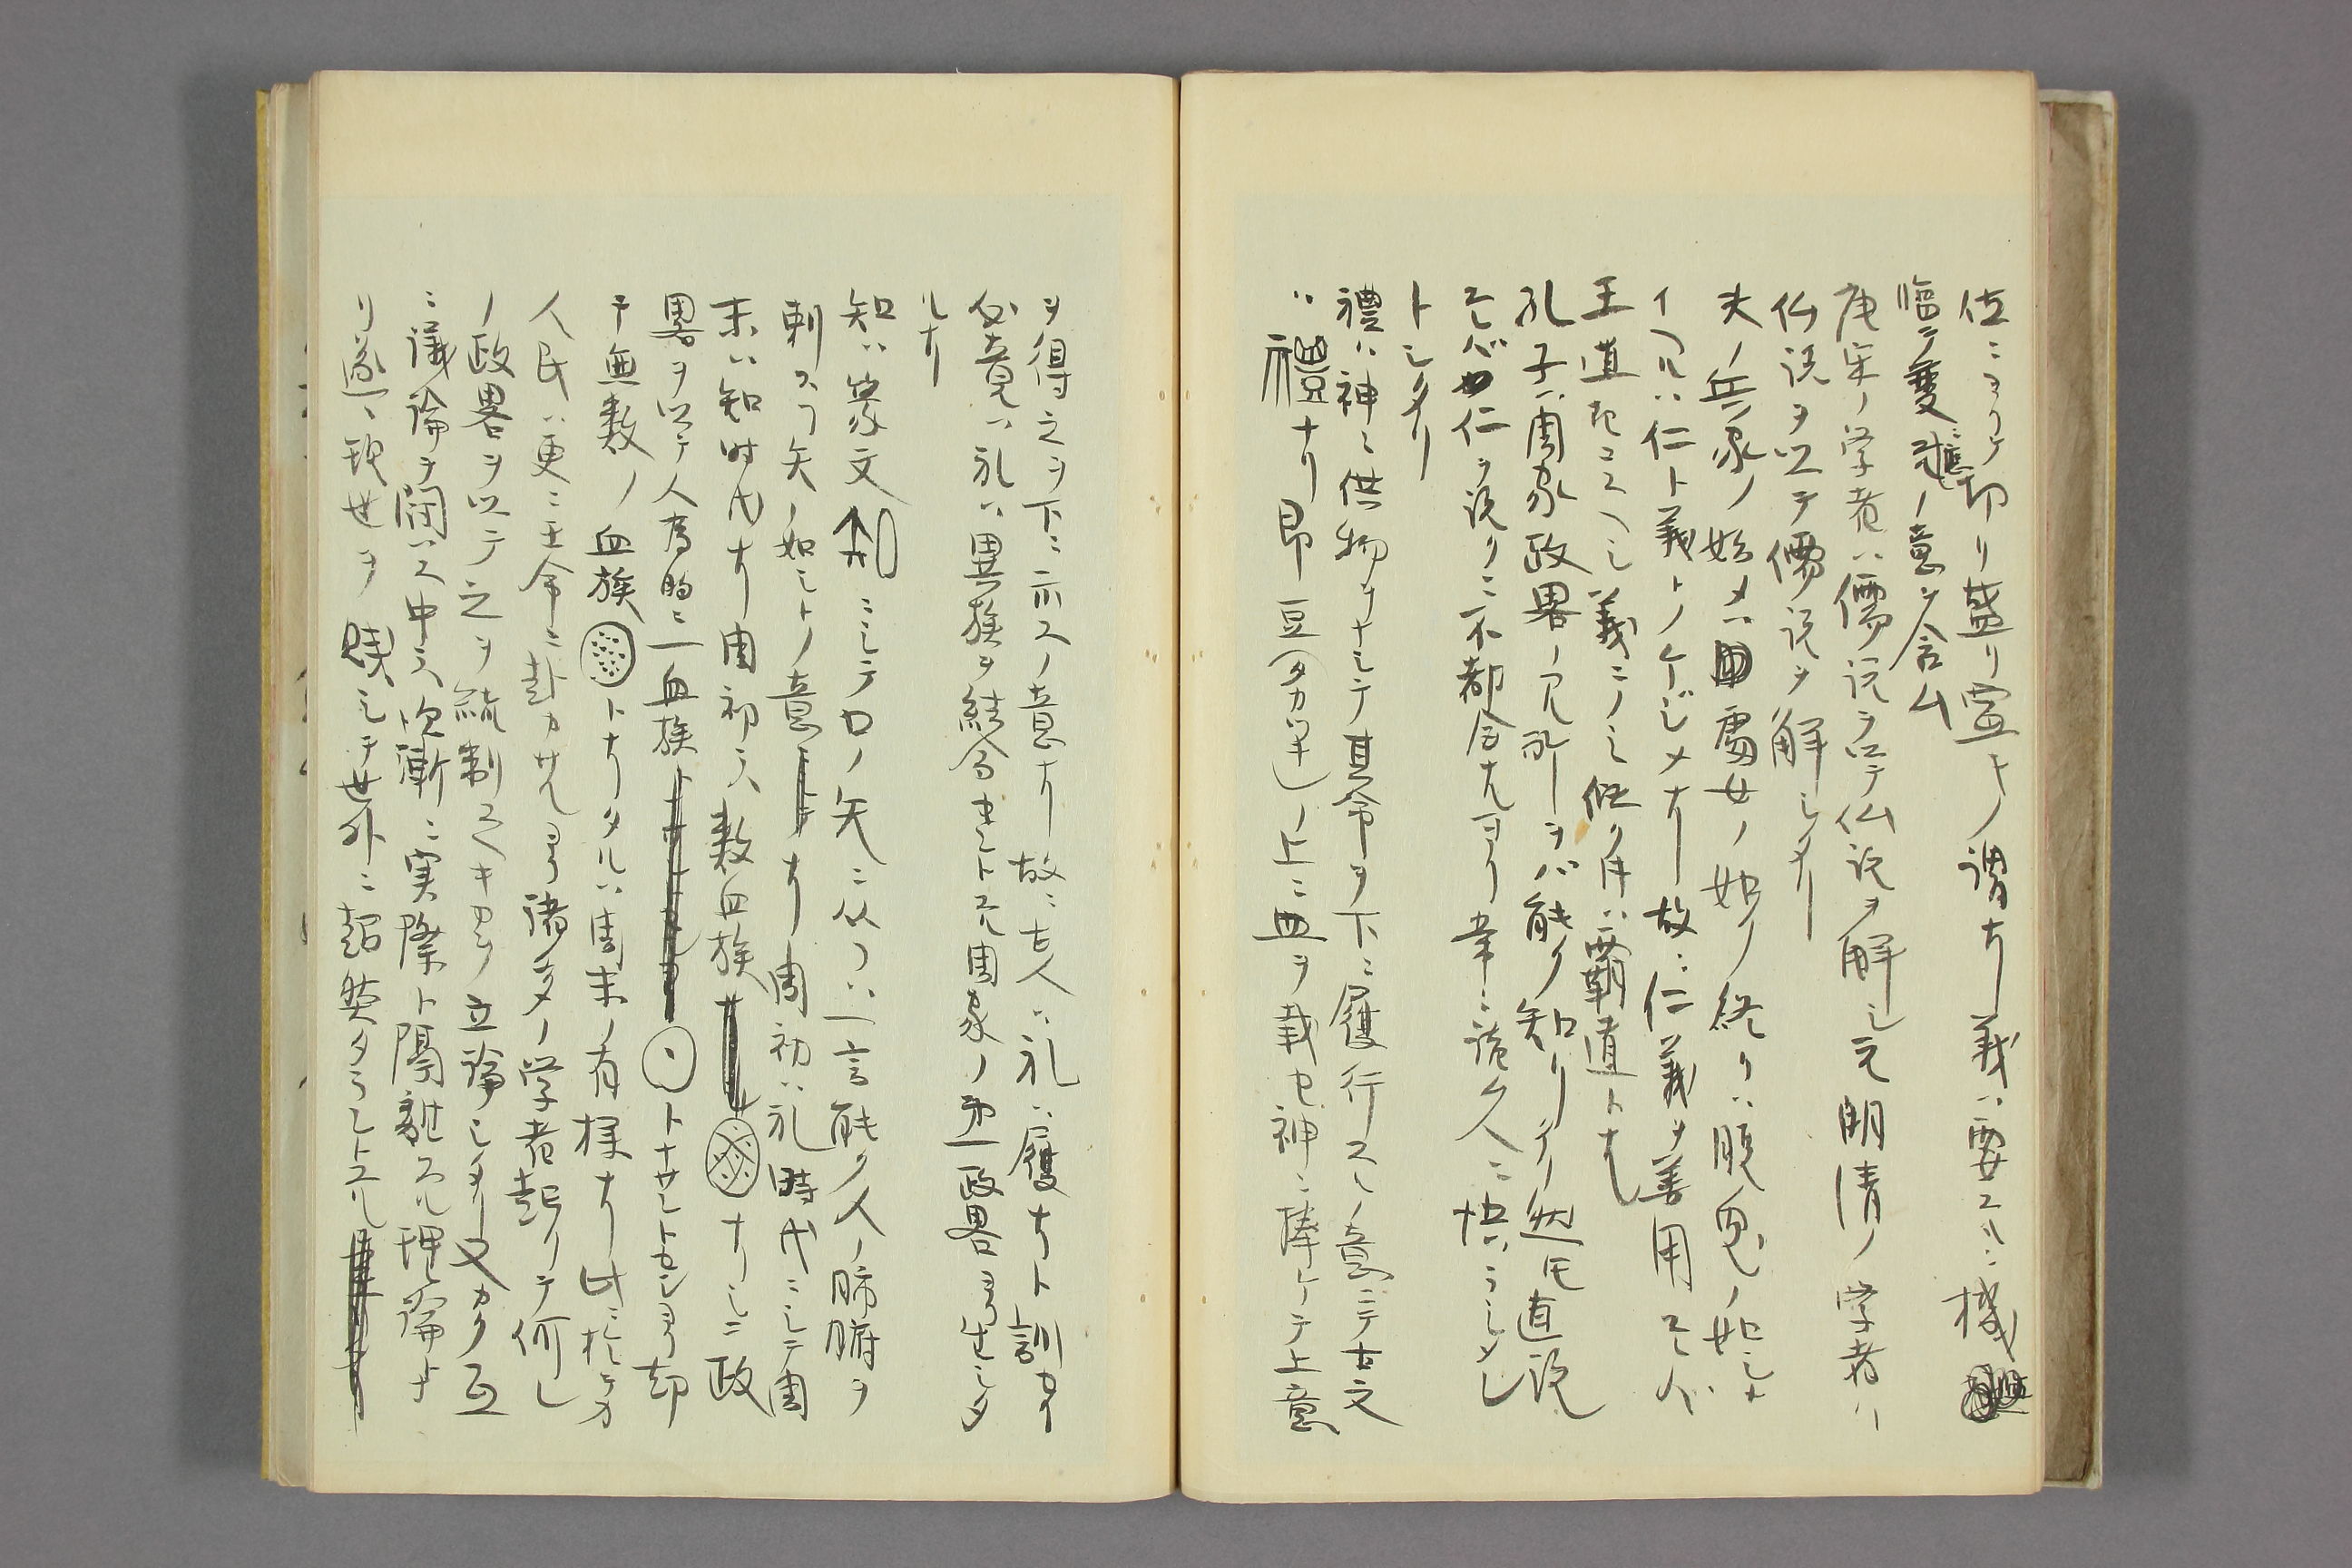 位ニヨリテ切リ盛リ宜キノ謂ナリ義ハ要スルニ機
臨ミ変ニ應ノ意ヲ含ム
唐宋ノ学者ハ儒説ヲ以テ仏説ヲ解シ元明清ノ学者ハ
仏説ヲ以テ儒説ヲ解シタリ
夫ノ兵家ノ始メハ処女ノ如ク終リハ脱兎ノ如シト
イフハ仁ト義トノケジメナリ故ニ仁義ヲ善用スレバ
王道起スヘシ義ニノミ偏リ用ハ覇道トナル
孔子ハ周家政畧ノ入所ヲバ能ク知リ居リ然レ𪜈直説
スレバ仁ヲ説クニ不都合ナルヨリ幸ニ諸人ニ快ハラシメ
トシタリ
禮ハ神ニ供物ヲナシテ其命ヲ下ニ履行スルノ意ニテ古文
ハ禮ナリ即豆(タカツキ)ノ上ニ血ヲ載セ神ニ捧ケテ上意
ヲ得之ヲ下ニ示スノ意ナリ故ニ古人ハ礼ハ履ナリト訓セリ
必竟ハ礼ハ異族ヲ結合セントスル周家ノ第一政畧ヨリ生シタ
ルナリ
知ハ篆文 ニシテ口ノ矢ニ从フハ一言能ク人ノ肺腑ヲ
刺スフ矢ノ如シトノ意ナリ周初ハ礼時代ニシテ周
末ハ知時代ナリ周初ニハ数血族ナリシニ政
畧ヲ以テ人為的ニ一血族トナサントセシヨリ却
テ無数ノ血族トナリタルハ周末ノ有様ナリ此ニ於テカ
人民ハ更ニ王命ニ赴カサルヨリ諸多ノ学者起リテ何レ
ノ政畧ヲ以テ之ヲ統制スヘキカヲ立論シタリ又カク互
ニ議論ヲ闘ハス中ニハ次漸ニ実際ト隔離スル理論トナ
リ遂ニ現世ヲ賤シテ世外ニ超然タラントスル